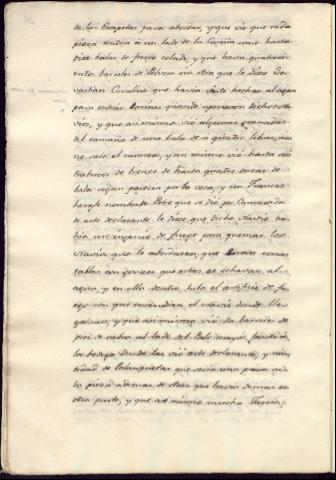 de las Escopetas para abordar, y que vió que cada
pieza tendria à un lado de la Cureña unas hasta
diez balas de fierro colado, y que hasta quatrocien
entos barriles de Polvora con otra que le dixo Se
vastian Cavallero que havia visto hechar al agua
para entrar quando apresaron dichos Na
vios, y que asi mismo vió algunas granadas
del tamaño de una bala de à quatro libras, mas
no sabe el numero, y asi mismo vió hasta seis
trabucos de bronze de hasta quatro onzas de
bala segun parecia por la voca, y un Frances
herege nombrado Petre que se dió por Camarada
de este declarante le dixo que dicho Navio tra
hia un ingenio de fuego para quemar los
Navios que lo abordasen, que heran unas
tablas con que estas se echavan al
agua, y en ello dentro hiba el artificio de fue
go con que encendian el navio donde lle
gavan, y que asi mismo vió barriles de
pez de calva al lado del Palo mayor, frontera
la bodega donde las vió este declarante, y can
tidad de Palanquetas que seria una para ca
la pieza ademas de otras que havia demas en
otra parte, y que asi mismo mucha Farcia,